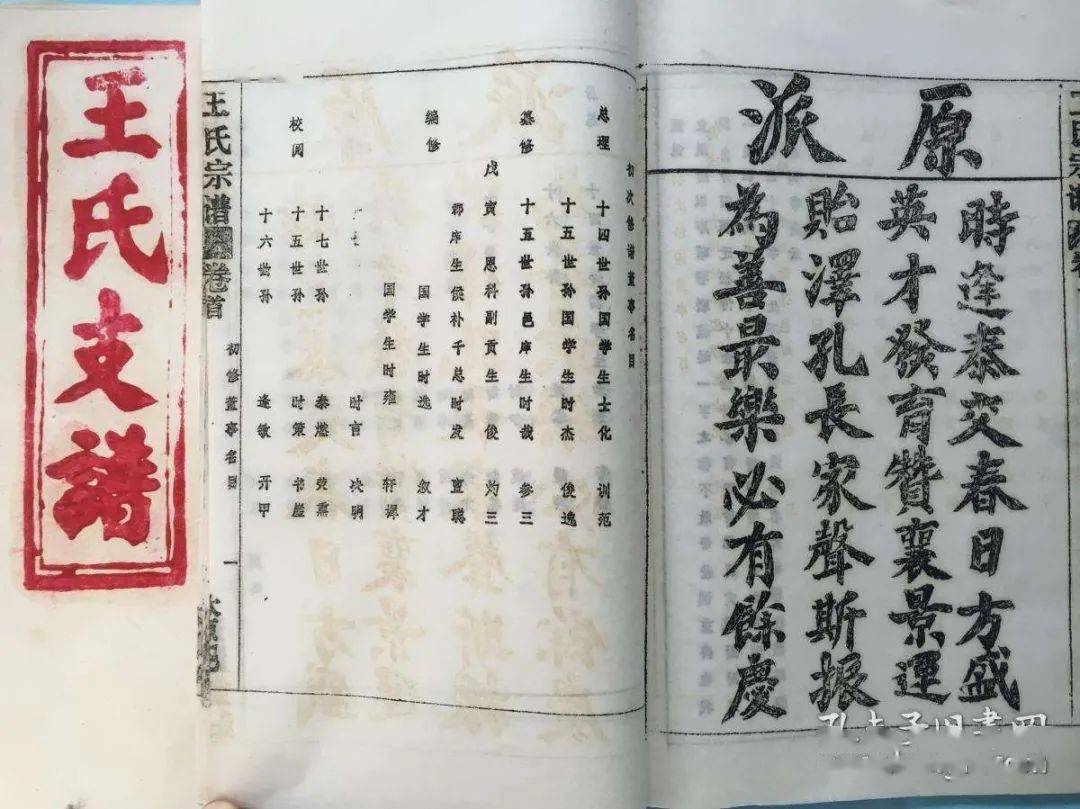 王氏支譜
原派
時逢泰交春日方盛
英才發育贊襄景運
貽澤孔長家聲斯振
為善最樂必有餘慶
初次修谱董事名目
总理
十四世孙国学生士化 训范
十五世孙国学生时杰 俊逸
纂修
十五世孙邑庠生时哉 参三
戊寅恩科副贡生俊 灼三
编修
郡庠生候补千总时发 宣聪
国学生时逸 叙才
国学生时雍 轩
时言 决明
校阅
十七世孙 泰燃
十五世孙 时策 书崖
十六世孙 逢敏 开甲
王氏宗谱 卷首
初修董事名目 一
孔夫子旧书网